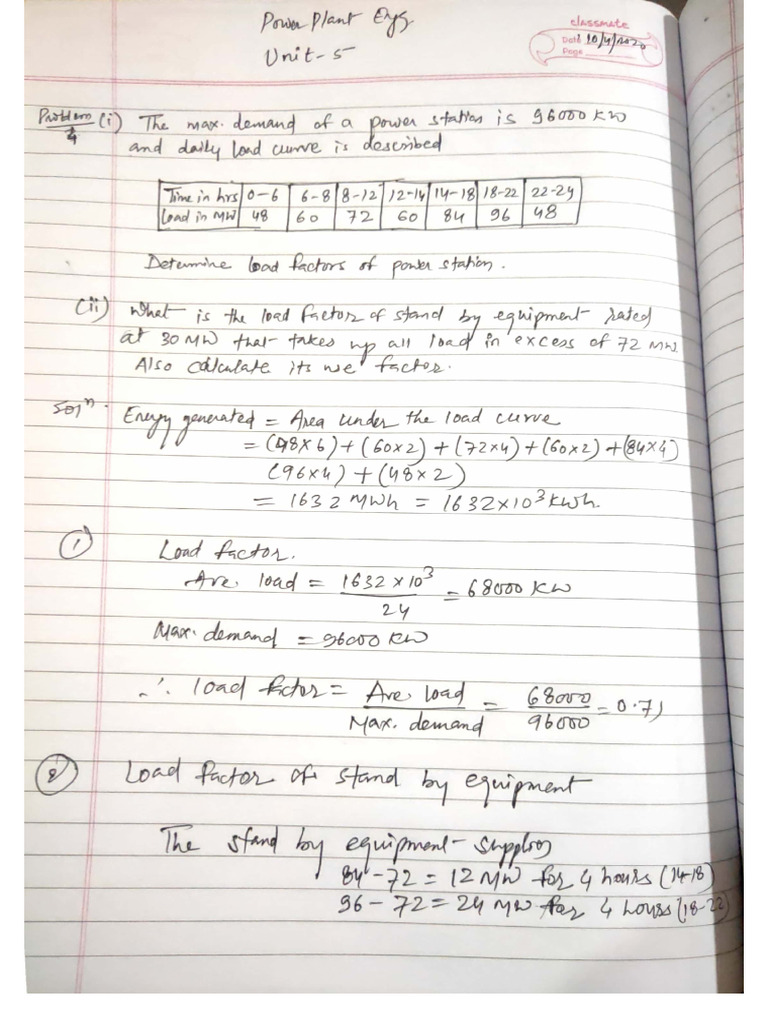 Power Plant Engg
Unit-5
classmate
Date 10/4/2020
Page
Problem 4 (i) The max. demand of a power station is 96000 KW
and daily load curve is described
Time in hrs 0-6 6-8 8-12 12-14 14-18 18-22 22-24
Load in MW 48 60 72 60 84 96 48
Determine load factors of power station.
(ii) What is the load factor of stand by equipment rated
at 30 MW that takes up all load in excess of 72 MW.
Also calculate its use factor.
Solⁿ. Energy generated = Area under the load curve
= (48×6)+(60×2)+(72×4)+(60×2)+(84×4)
(96×4)+(48×2)
= 1632 MWh = 1632×10³ kwh.
① Load factor.
Ave. load = 1632×10³ / 24 = 68000 KW
Max. demand = 96000 KW
∴ load factor = Ave load / Max. demand = 68000 / 96000 = 0.71
② Load factor of stand by equipment
The stand by equipment supplies
84-72 = 12 MW for 4 hours (14-18)
96-72 = 24 MW for 4 hours (18-22)